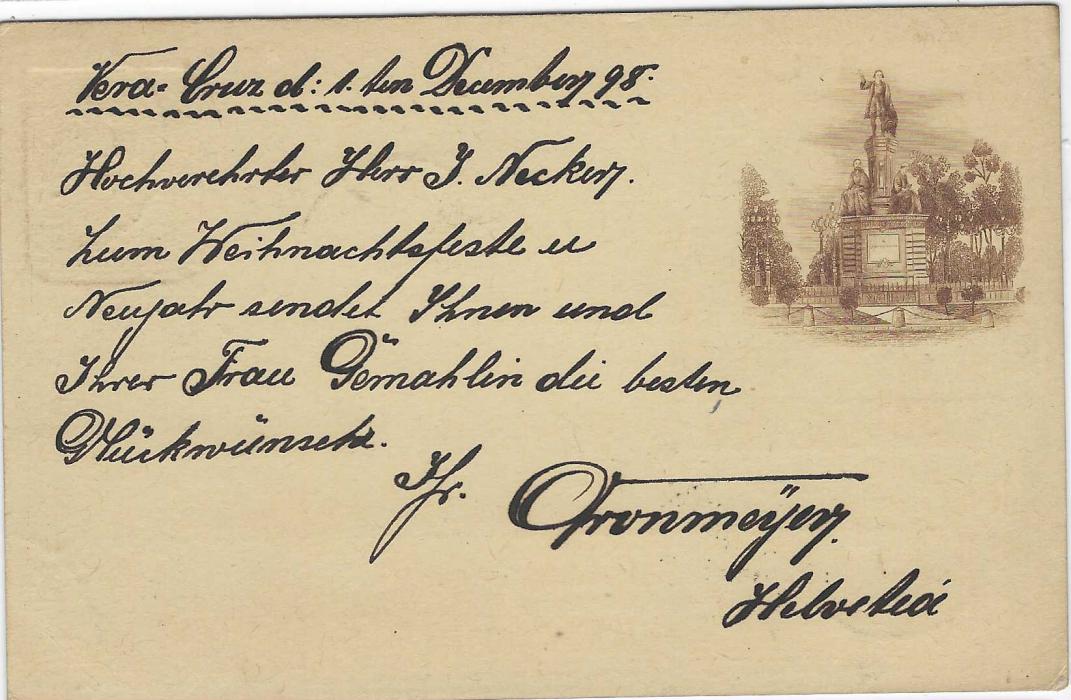 Vera-Cruz d: 1. ten December 98.
Hochverehrter Herr J. Necker.
Zum Weihnachtsfeste u
Neujahr sendet Ihnen und
Ihrer Frau Gemahlin die besten
Glückwünsche.
Ihr.
Helvetia